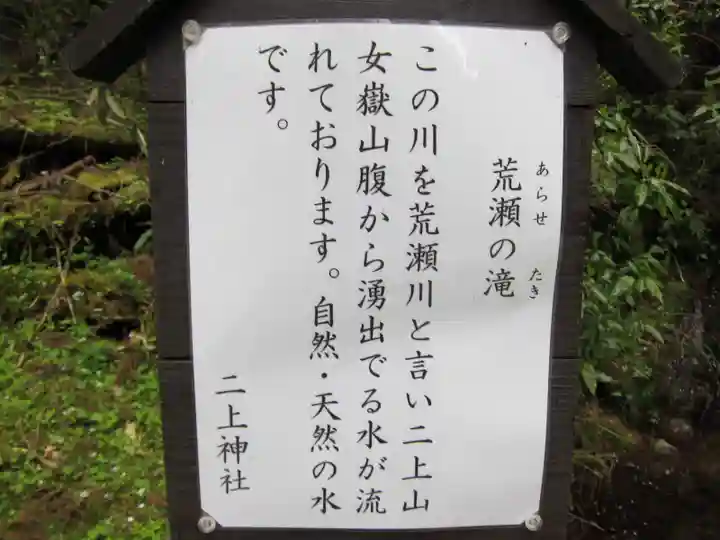 荒瀬の滝
あらせ たき
この川を荒瀬川と言い二上山
女嶽山腹から湧出でる水が流
れております。自然・天然の水
です。
二上神社